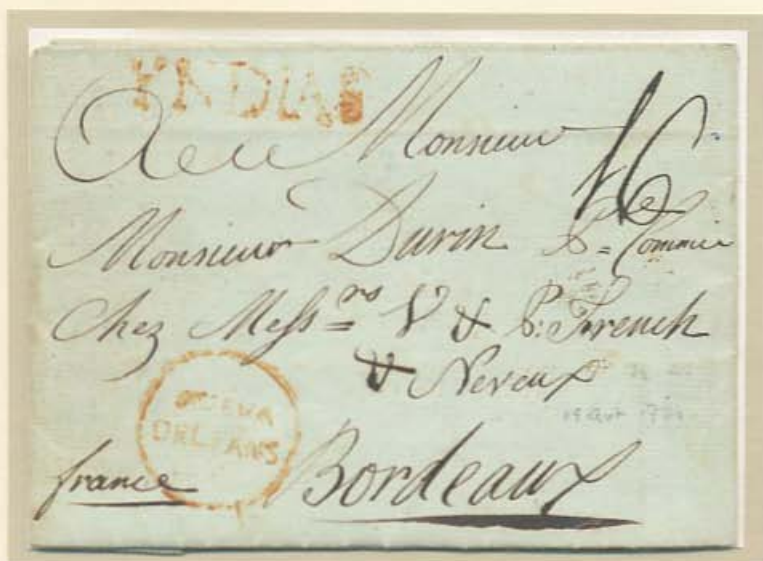 YNDIAS
A Monsieur
16
Monsieur Durin P.er Commis
Chez Mess.rs V & P: French
& Neveux
NUEVA
ORLEANS
france Bordeaux